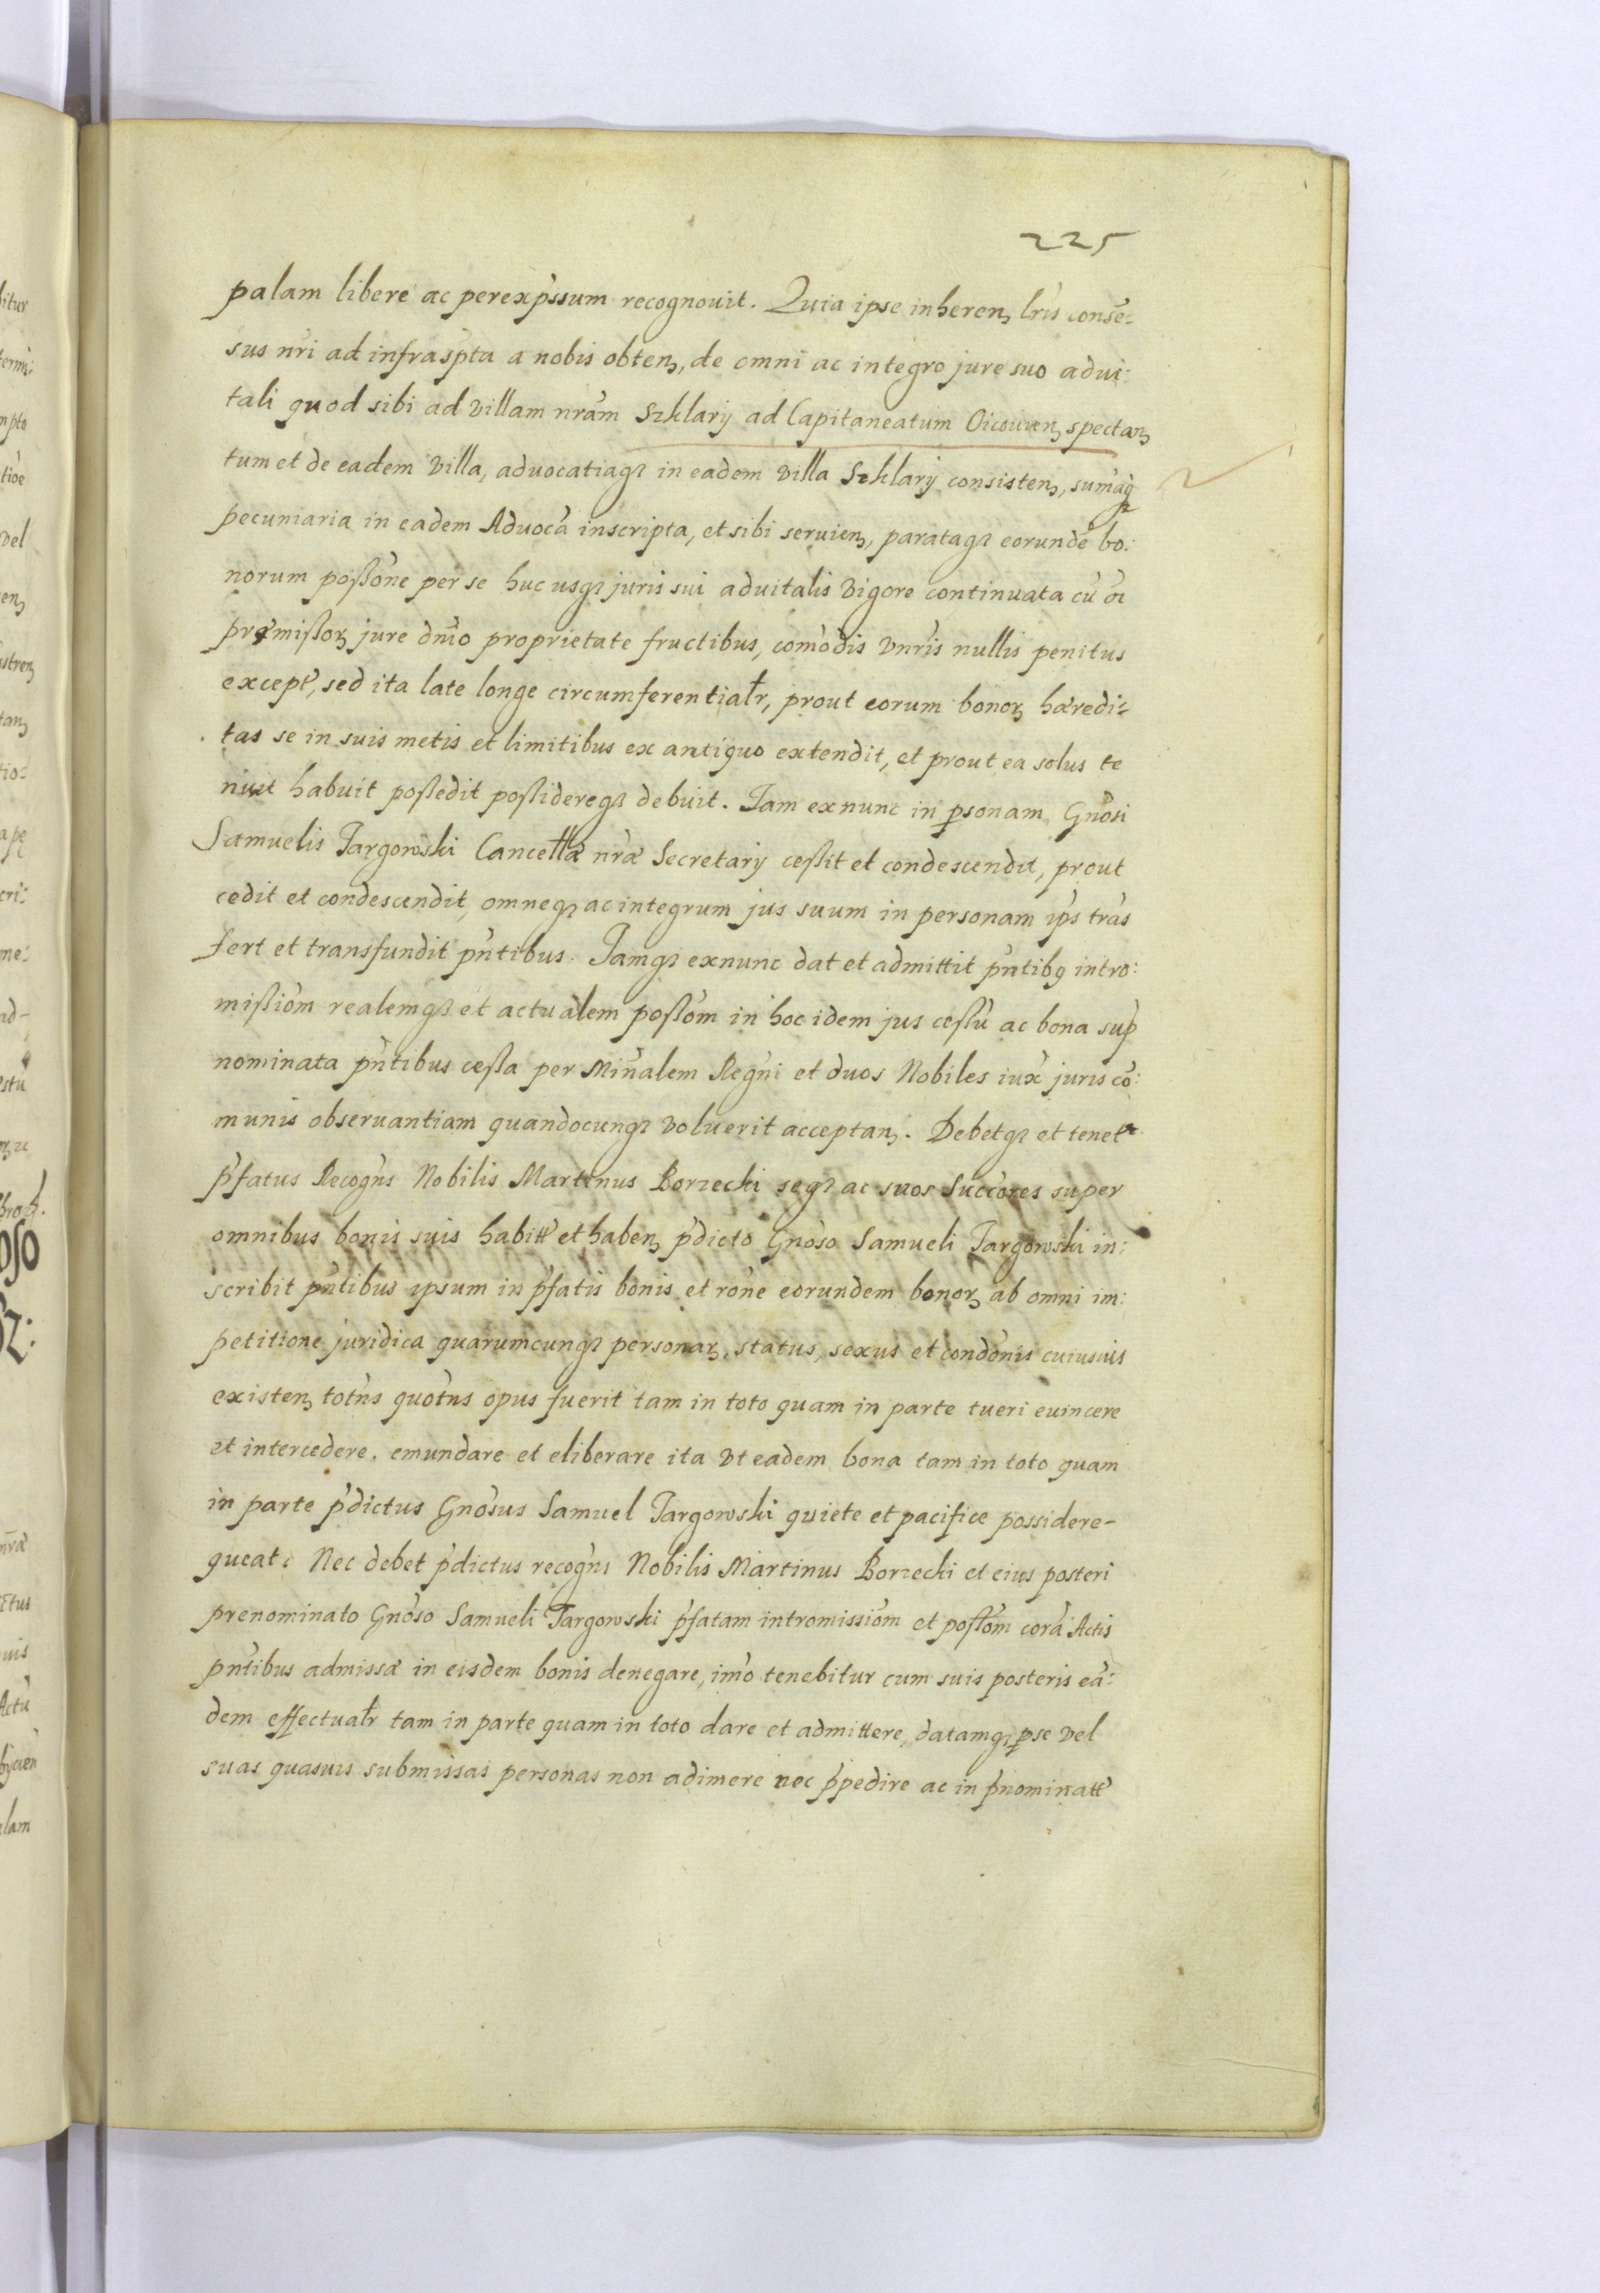 225
palam libere ac perexp̃ssum recognouit. Quia ipse inherenꝫ lr̃is consẽ-
sus nr̃i ad infrasp̃ta a nobis obtenꝫ, de omni ac integro jure suo advi:
tali quod sibi ad villam nrãm Szklarÿ ad Capitaneatum Oicouienꝫ spectanꝫ
tum et de eadem villa, aduocatiaqꝫ in eadem villa Szklarÿ consistenꝫ, sum̃aqꝫ
pecuniaria in eadem Aduocã inscripta, et sibi seruienꝫ, parataqꝫ eorundẽ bo:
norum possõne per se huc usqꝫ juris sui aduitalis vigore continuata cũ oĩ
præmissorꝫ jure dmĩo proprietate fructibus, com̃odis vnr̃is nullis penitus
except̃, sed ita late longe circumferentialr̃, prout eorum bonorꝫ hæredi-
tas se in suis metis et limitibus ex antiquo extendit, et prout ea solus te
nuit habuit possedit possidereqꝫ debuit. Iam exnunc in p̱sonam Gnõsi
Samuelis Targowski Cancellæ nræ̃ Secretarÿ cessit et condescendit, prout
cedit et condescendit, omneqꝫ ac integrum jus suum in personam ip̃s trãs
fert et transfundit pñtibus. Iamqꝫ exnunc dat et admittit pñtibꝰ intro:
missiõm realemqꝫ et actualem possõm in hoc idem jus cessũ ac bona sup̃
nominata pñtibus cessa per Miñalem Regni et duos Nobiles iux̃ juris cõ:
munis obseruantiam quandocunqꝫ voluerit acceptanꝫ. Debetqꝫ et tenet̃
p̃fatus Recogñs Nobilis Martinus Borzecki seqꝫ ac suos Succores super
omnibus bonis suis habitt̃ et habenꝫ p̃dicto Gnõso Samueli Targowski in:
scribit pñtibus ipsum in p̃fatis bonis et rõne eorundem bonorꝫ ab omni im:
petitione juridica quarumcunqꝫ personarꝫ, status, sexus et condõnis cuiusuis
existenꝫ totñs quotñs opus fuerit tam in toto quam in parte tueri euincere
et intercedere, emundare et eliberare ita vt eadem bona tam in toto quam
in parte p̃dictus Gnõsus Samuel Targowski quiete et pacifice possidere-
queat. Nec debet p̃dictus recogñs Nobilis Martinus Borzecki et eius posteri
prenominato Gnõso Samueli Targowski p̃fatam intromissiõm et possõm corã Actis
pñtibus admissã in eisdem bonis denegare, im̃o tenebitur cum suis posteris eã:
dem effectualr̃ tam in parte quam in toto dare et admittere, datamqꝫ p̱ se vel
suas quasuis submissas personas non adimere nec p̃pedire ac in p̃nominatt̃